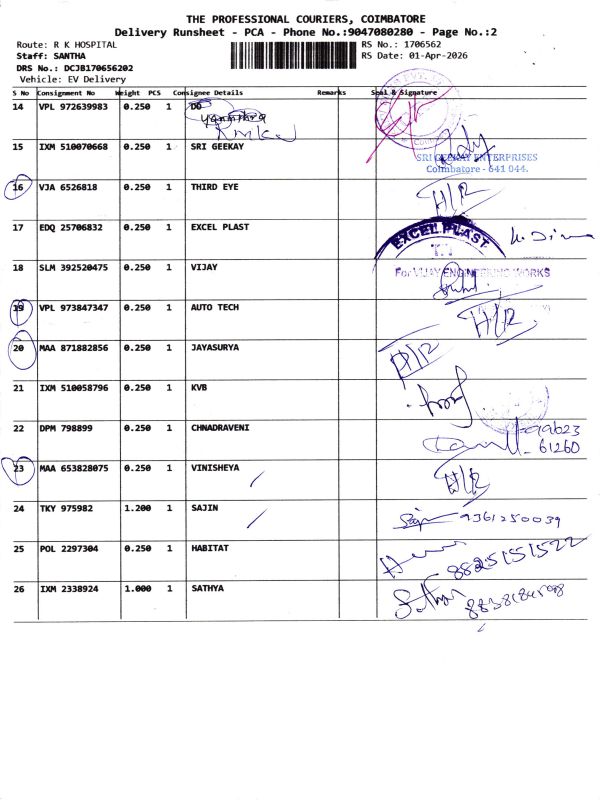 THE PROFESSIONAL COURIERS, COIMBATORE
Delivery Runsheet - PCA - Phone No.:9047080280 - Page No.:2
Route: R K HOSPITAL
RS No.: 1706562
Staff: SANTHA
RS Date: 01-Apr-2026
DRS No.: DCJB170656202
Vehicle: EV Delivery
S No Consignment No Weight PCS Consignee Details Remarks Seal & Signature
14 VPL 972639983 0.250 1 DO
15 IXM 510070668 0.250 1 SRI GEEKAY
SRI GEEKAY ENTERPRISES
Coimbatore - 641 044.
16 VJA 6526818 0.250 1 THIRD EYE H/R
17 EDQ 25706832 0.250 1 EXCEL PLAST EXCEL PLAST
18 SLM 392520475 0.250 1 VIJAY For VIJAY ENGINEERING WORKS
19 VPL 973847347 0.250 1 AUTO TECH H/R
20 MAA 871882856 0.250 1 JAYASURYA H/R
21 IXM 510058796 0.250 1 KVB
22 DPM 798899 0.250 1 CHNADRAVENI 99623
61260
23 MAA 653828075 0.250 1 VINISHEYA H/R
24 TKY 975982 1.200 1 SAJIN 9361250039
25 POL 2297304 0.250 1 HABITAT 8825151522
26 IXM 2338924 1.000 1 SATHYA